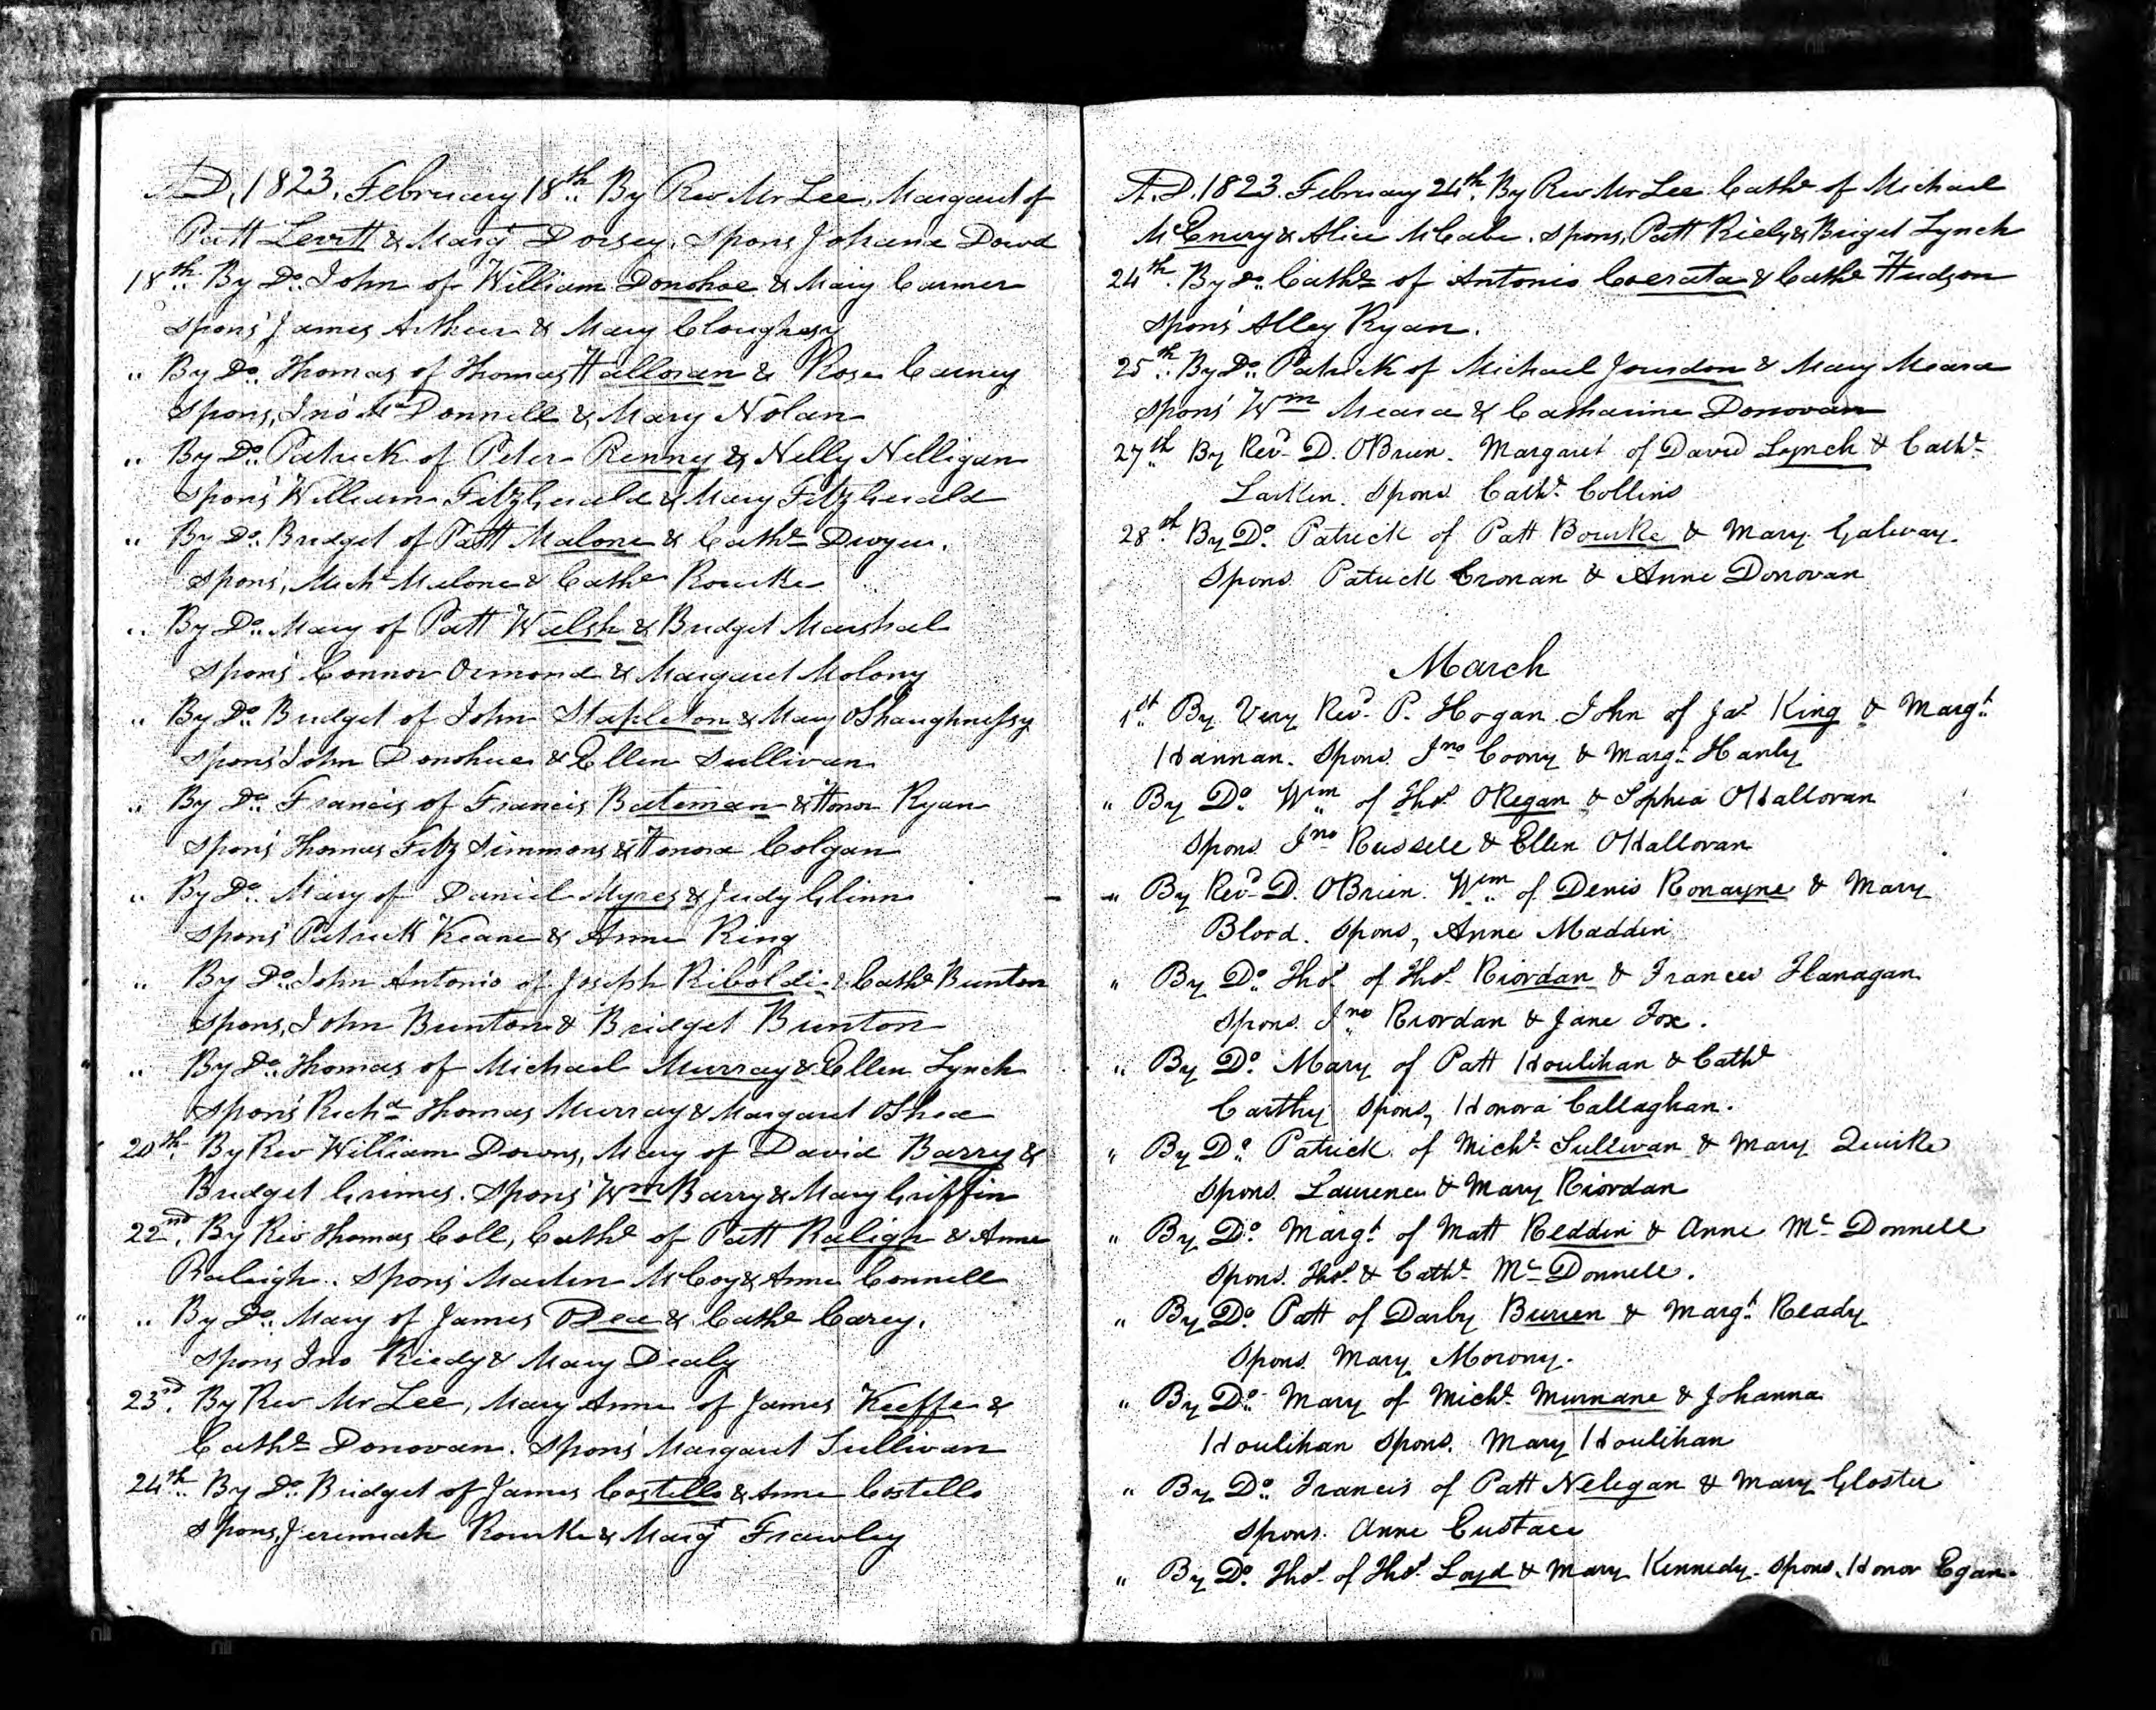 A.D. 1823. February 18th. By Rev Mr Lee, Margaret of
Patt Levitt & Marg Dorsey. Spons Johana Dowd
18th. By Do. John of William Donohoe & Mary Carmer
Spons James Arthur & Mary Cloughesy
" By Do. Thomas of Thomas Halloran & Rose Carney
Spons, Jno McDonnell & Mary Nolan
" By Do. Patrick of Peter Renny & Nelly Nelligan
Spons William FitzGerald & Mary FitzGerald
" By Do. Bridget of Patt Malone & Cathe Dwyer.
Spons, Michl Malone & Cathe Rourke
" By Do. Mary of Patt Walsh & Bridget Marshal
Spons Connor Ormond & Margaret Molony
" By Do. Bridget of John Stapleton & Mary OShaughnessy
Spons John Donohue & Ellen Sullivan
" By Do. Francis of Francis Bateman & Honor Ryan
Spons Thomas Fitz Simmons & Honora Colgan
" By Do. Mary of Daniel Myres & Judy Glinn
Spons Patrick Keane & Anne Ring
" By Do. John Antonio of Joseph Riboldi & Cathe Bunton
Spons, John Bunton & Bridget Bunton
" By Do. Thomas of Michael Murray & Ellen Lynch
Spons Richd Thomas Murray & Margaret OShea
20th. By Rev William Downs, Mary of David Barry &
Bridget Grimes. Spons Wm Barry & Mary Griffin
22nd. By Rev Thomas Coll, Cathe of Patt Raligh & Anne
Raleigh. Spons Martin McCoy & Anne Connell
" By Do. Mary of James ODea & Cathe Carey.
Spons Jno Riedy & Mary Dealy
23rd. By Rev Mr Lee, Mary Anne of James Keeffe &
Cathe Donovan. Spons Margaret Sullivan
24th. By Do. Bridget of James Costello & Anne Costello
Spons, Jeremiah Rourke & Marg Frawley
A.D. 1823. February 24th. By Rev Mr Lee Cathe of Michael
McEnery & Alice McCabe. Spons, Patt Riely & Briget Lynch
24th. By Do. Cathe of Antonio Coerata & Cathe Hudson
Spons Alley Ryan.
25th. By Do. Patrick of Michael Jourdon & Mary Meara
Spons Wm Meara & Catharine Donovan
27th By Revd D. OBrien. Margaret of David Lynch & Cathe
Larkin. Spons Cathe Collins
28th. By Do. Patrick of Patt Bourke & Mary Galway.
Spons Patrick Cronan & Anne Donovan
March
1st By Very Revd P. Hogan. John of Jas King & Margt
Hannan. Spons Jno Coony & Margt Hanly
" By Do. Wm of Thos ORegan & Sophia OHalloran
Spons Jno Russell & Ellen OHalloran
" By Revd D. OBrien. Wm of Denis Ronayne & Mary
Blood. Spons, Anne Maddin
" By Do. Thos of Thos Riordan & Frances Flanagan
Spons. Jno Riordan & Jane Fox.
" By Do. Mary of Patt Houlihan & Cathe
Carthy Spons, Honora Callaghan.
" By Do. Patrick of Michl Sullivan & Mary Quirke
Spons. Laurence & Mary Riordan
" By Do. Margt of Matt Reddin & Anne Mc Donnell
Spons. Thos & Cathe Mc Donnell.
" By Do. Patt of Darby Burren & Margt Ready
Spons. Mary Morony.
" By Do. Mary of Michl Murnane & Johanna
Houlihan Spons. Mary Houlihan
" By Do. Francis of Patt Nelegan & Mary Gloster
Spons. Anne Eustace
" By Do. Thos of Thos Loyd & Mary Kennedy. Spons. Honor Egan.